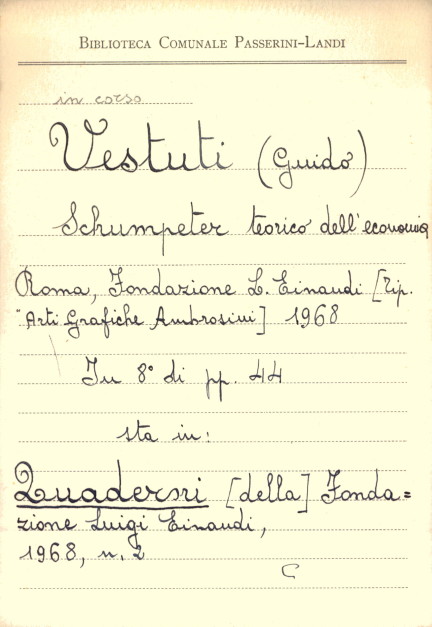 BIBLIOTECA COMUNALE PASSERINI-LANDI
in corso
Vestuti (Guido)
Schumpeter teorico dell'economia
Roma, Fondazione L. Einaudi [Tip.
"Arti Grafiche Ambrosini] 1968
In 8° di pp. 44
sta in:
Quaderni [della] Fonda=
zione Luigi Einaudi,
1968, n. 2
C